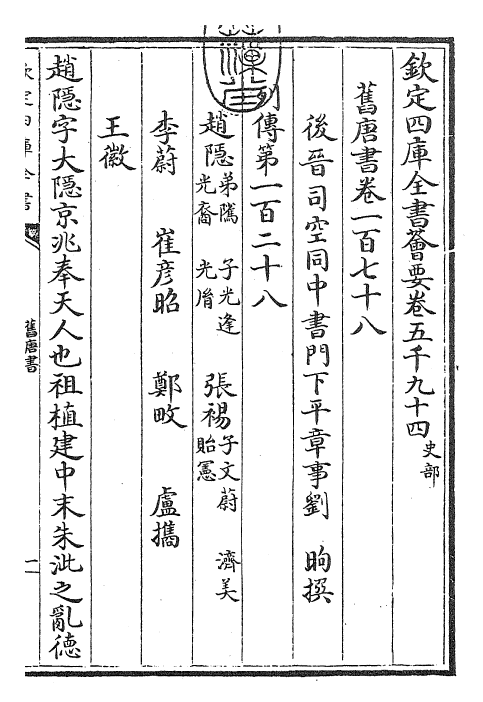 欽定四庫全書薈要卷五千九十四 史部
舊唐書卷一百七十八
後晉司空同中書門下平章事劉 昫撰
列傳第一百二十八
趙隱 弟隲 子光逢 光裔 光胤 張裼 子文蔚 濟美 貽憲
李蔚 崔彥昭 鄭畋 盧攜
王徽
趙隱字大隱京兆奉天人也祖植建中末朱泚之亂德
欽定四庫全書
舊唐書
一